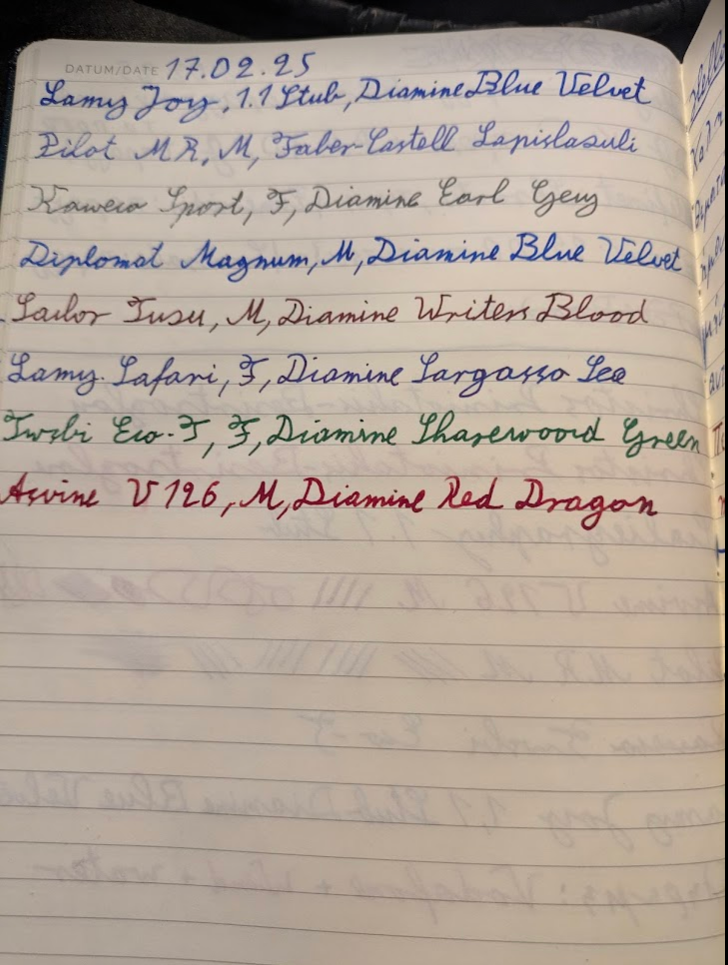 DATUM/DATE 17.02.25
Lamy Joy, 1.1 Stub, Diamine Blue Velvet
Pilot MR, M, Faber-Castell Lapislasuli
Kaweco Sport, F, Diamine Earl Grey
Diplomat Magnum, M, Diamine Blue Velvet
Sailor Tuzu, M, Diamine Writers Blood
Lamy Safari, F, Diamine Sargasso Sea
Twsbi Eco-T, F, Diamine Sharewood Green
Asvine V126, M, Diamine Red Dragon